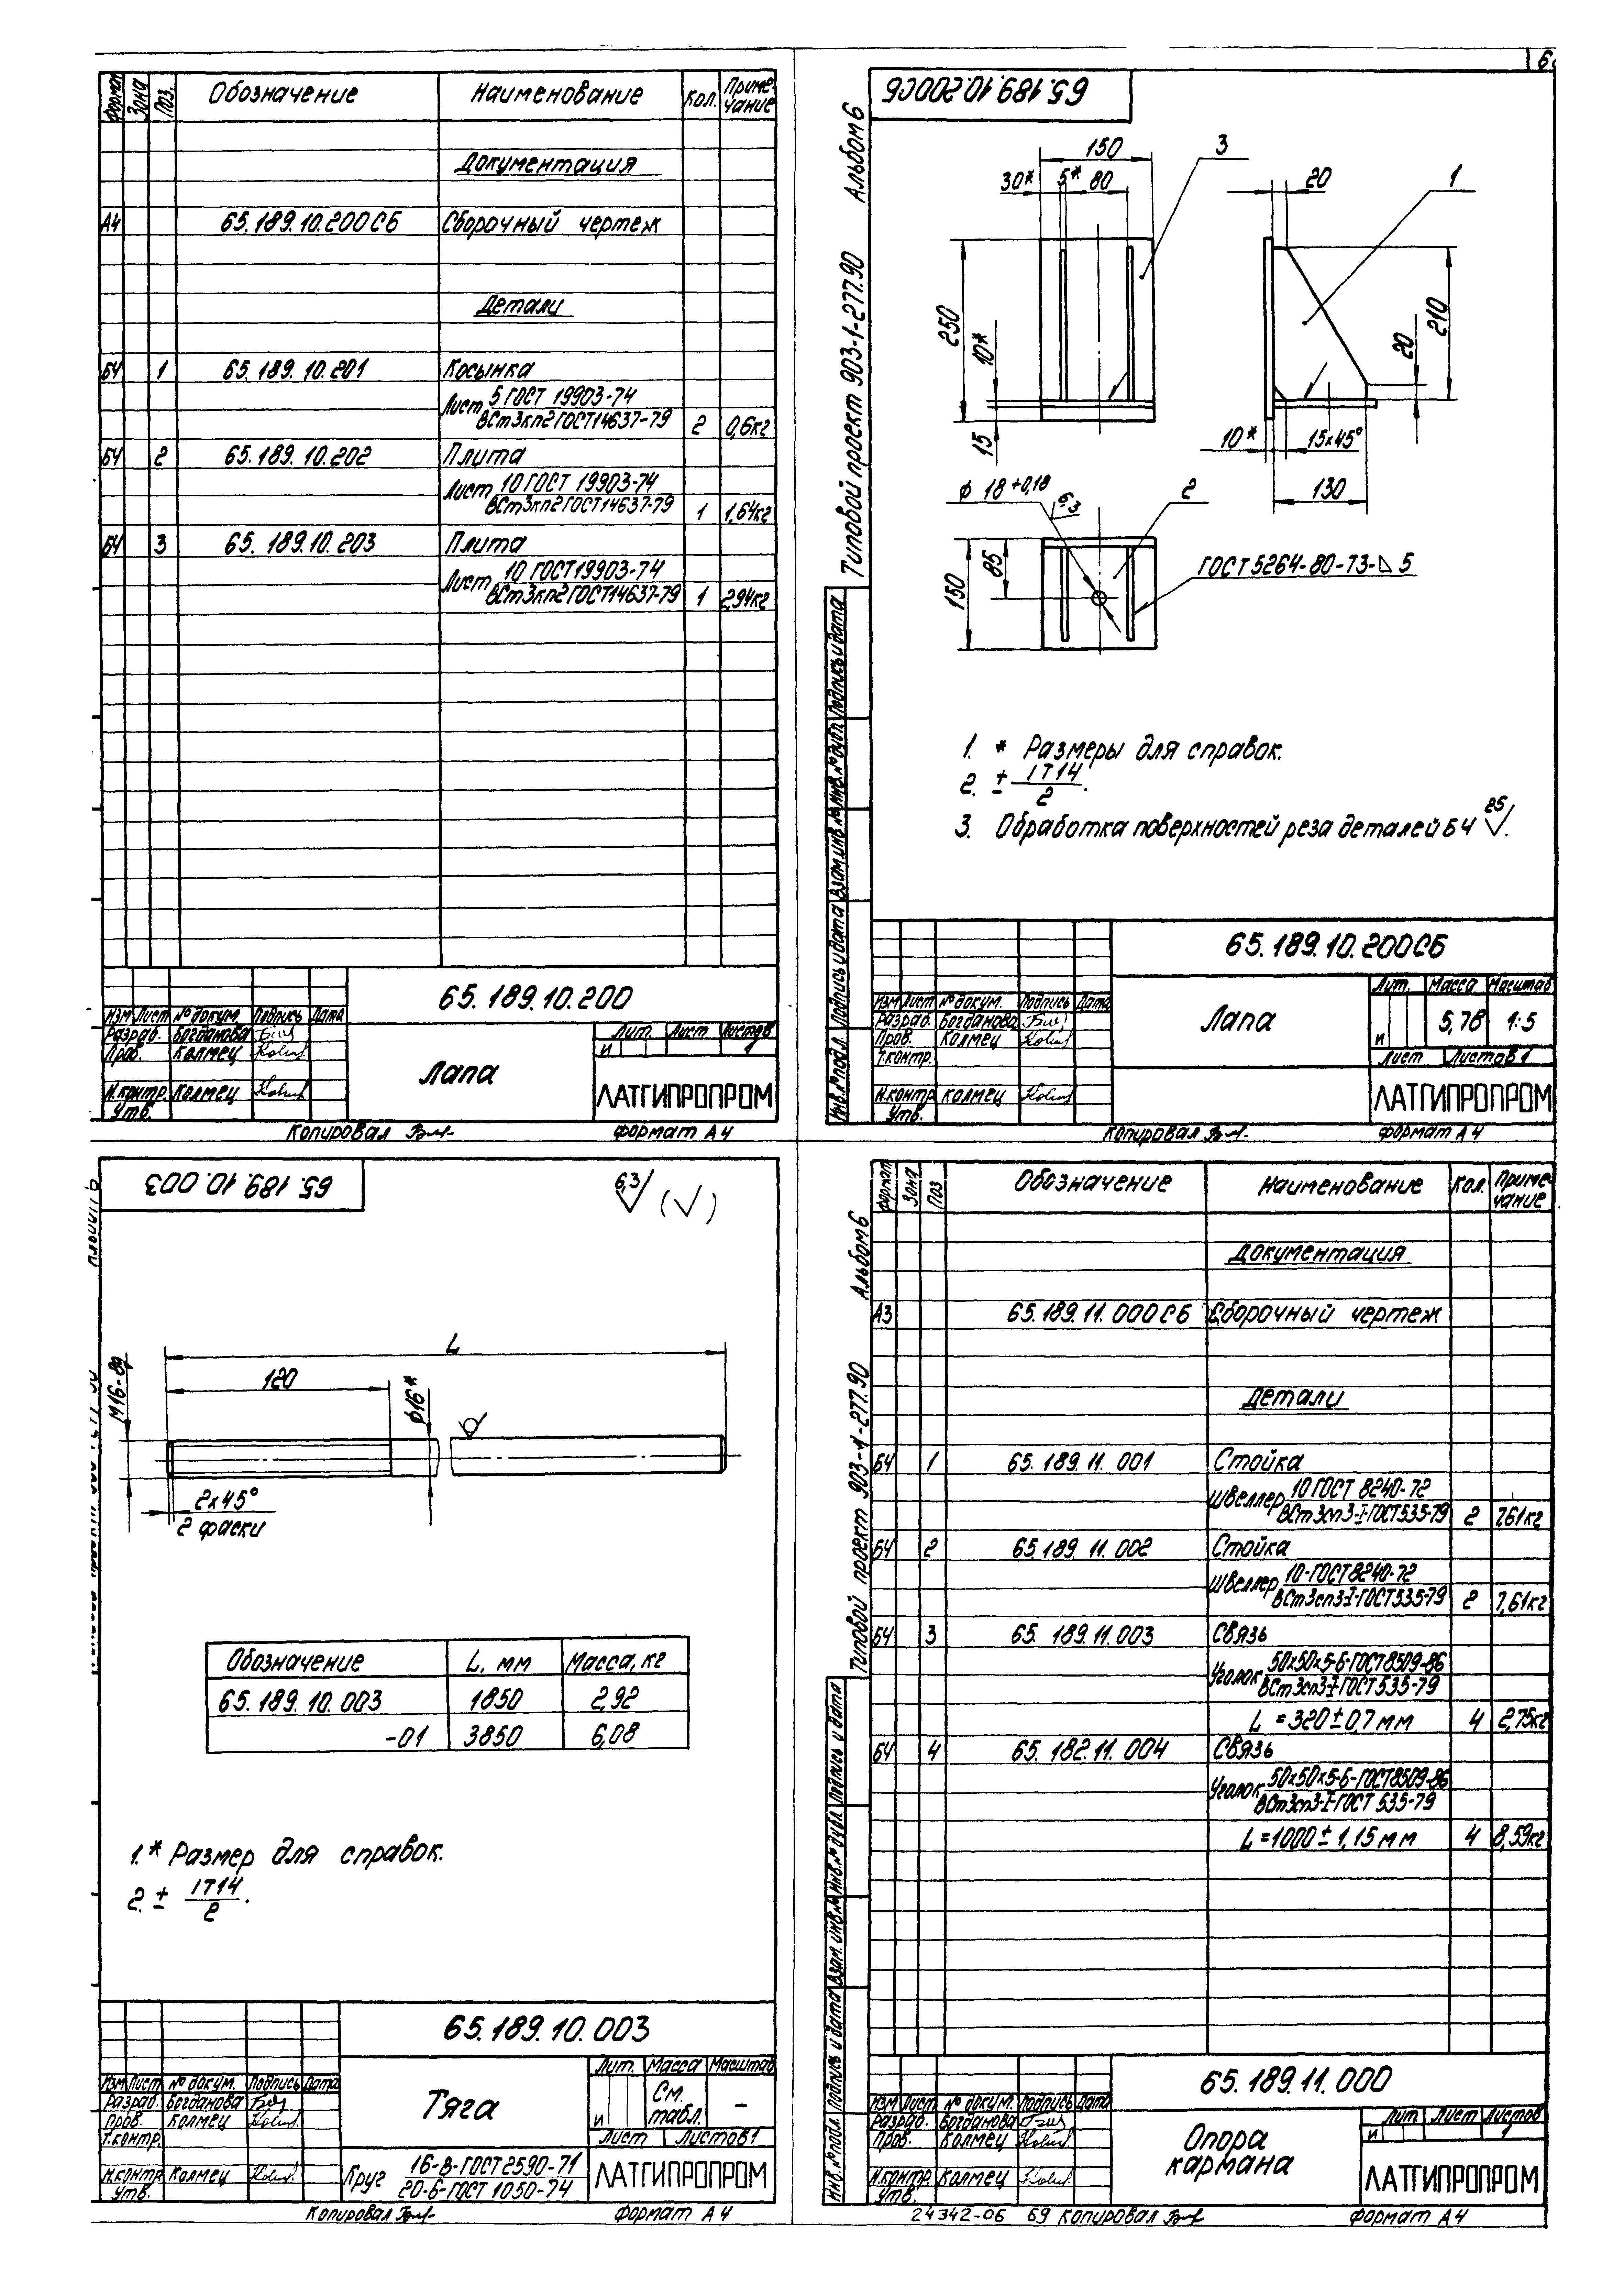 6
Формат Зона Поз. Обозначение Наименование Кол. Приме-чание
Документация
А4 65.189.10.200СБ Сборочный чертеж
Детали
БЧ 1 65.189.10.201 Косынка
Лист 5 ГОСТ 19903-74
ВСт3кп2ГОСТ14637-79 2 0,6кг
БЧ 2 65.189.10.202 Плита
Лист 10 ГОСТ 19903-74
ВСт3кп2ГОСТ14637-79 1 1,64кг
БЧ 3 65.189.10.203 Плита
Лист 10 ГОСТ19903-74
ВСт3кп2ГОСТ14637-79 1 2,94кг
65.189.10.200
Изм Лист № докум. Подпись Дата
Разраб. Богданова
Пров. Колмец
Н.контр. Колмец
Утв.
Лапа
Лит. Лист Листов
И 1
ЛАТГИПРОПРОМ
Копировал
Формат А4
65.189.10.200СБ
Альбом 6
Типовой проект 903-1-277.90
150 3
30* 5* 80
20 1
250
10*
15
210
20
10* 15х45°
130
ϕ 18 +0,18
6,3
2
85
150
ГОСТ5264-80-Т3-◺5
1. * Размеры для справок.
2. ± IT14
2.
3. Обработка поверхностей реза деталей БЧ 25.
Инв.№подл. Подпись и дата Взам.инв.№ Инв.№дубл. Подпись и дата
65.189.10.200СБ
Изм Лист № докум. Подпись Дата
Разраб. Богданова
Пров. Колмец
Т.контр.
Н.контр. Колмец
Утв.
Лапа
Лит. Масса Масштаб
И 5,78 1:5
Лист Листов 1
ЛАТГИПРОПРОМ
Копировал
Формат А4
65.189.10.003
6,3 (√)
L
120
М16-8g
ϕ16*
2х45°
2 фаски
Обозначение L, мм Масса, кг
65.189.10.003 1850 2,92
-01 3850 6,08
1.* Размер для справок.
2. ± IT14
2.
65.189.10.003
Изм Лист № докум. Подпись Дата
Разраб. Богданова
Пров. Колмец
Т.контр.
Н.контр. Колмец
Утв.
Тяга
Лит. Масса Масштаб
И См. табл. –
Лист Листов 1
Круг 16-В-ГОСТ2590-71
20-б-ГОСТ 1050-74
ЛАТГИПРОПРОМ
Копировал
Формат А4
Альбом 6
Типовой проект 903-1-277.90
Формат Зона Поз Обозначение Наименование Кол. Приме-чание
Документация
А3 65.189.11.000СБ Сборочный чертеж
Детали
БЧ 1 65.189.11.001 Стойка
Швеллер 10 ГОСТ 8240-72
ВСт3сп3-I-ГОСТ535-79 2 7,61кг
БЧ 2 65.189.11.002 Стойка
Швеллер 10-ГОСТ8240-72
ВСт3сп3-I-ГОСТ535-79 2 7,61кг
БЧ 3 65.189.11.003 Связь
Уголок 50х50х5-Б-ГОСТ8509-86
ВСт3сп3-I-ГОСТ535-79
L =320±0,7мм 4 2,75кг
БЧ 4 65.182.11.004 Связь
Уголок 50х50х5-Б-ГОСТ8509-86
ВСт3сп3-I-ГОСТ 535-79
L =1000±1,15мм 4 8,59кг
Инв.№подл. Подпись и дата Взам.инв.№ Инв.№дубл. Подпись и дата
65.189.11.000
Изм Лист № докум. Подпись Дата
Разраб. Богданова
Пров. Колмец
Н.контр. Колмец
Утв.
Опора
кармана
Лит Лист Листов
И 1
ЛАТГИПРОПРОМ
24342-06 69 Копировал
Формат А4